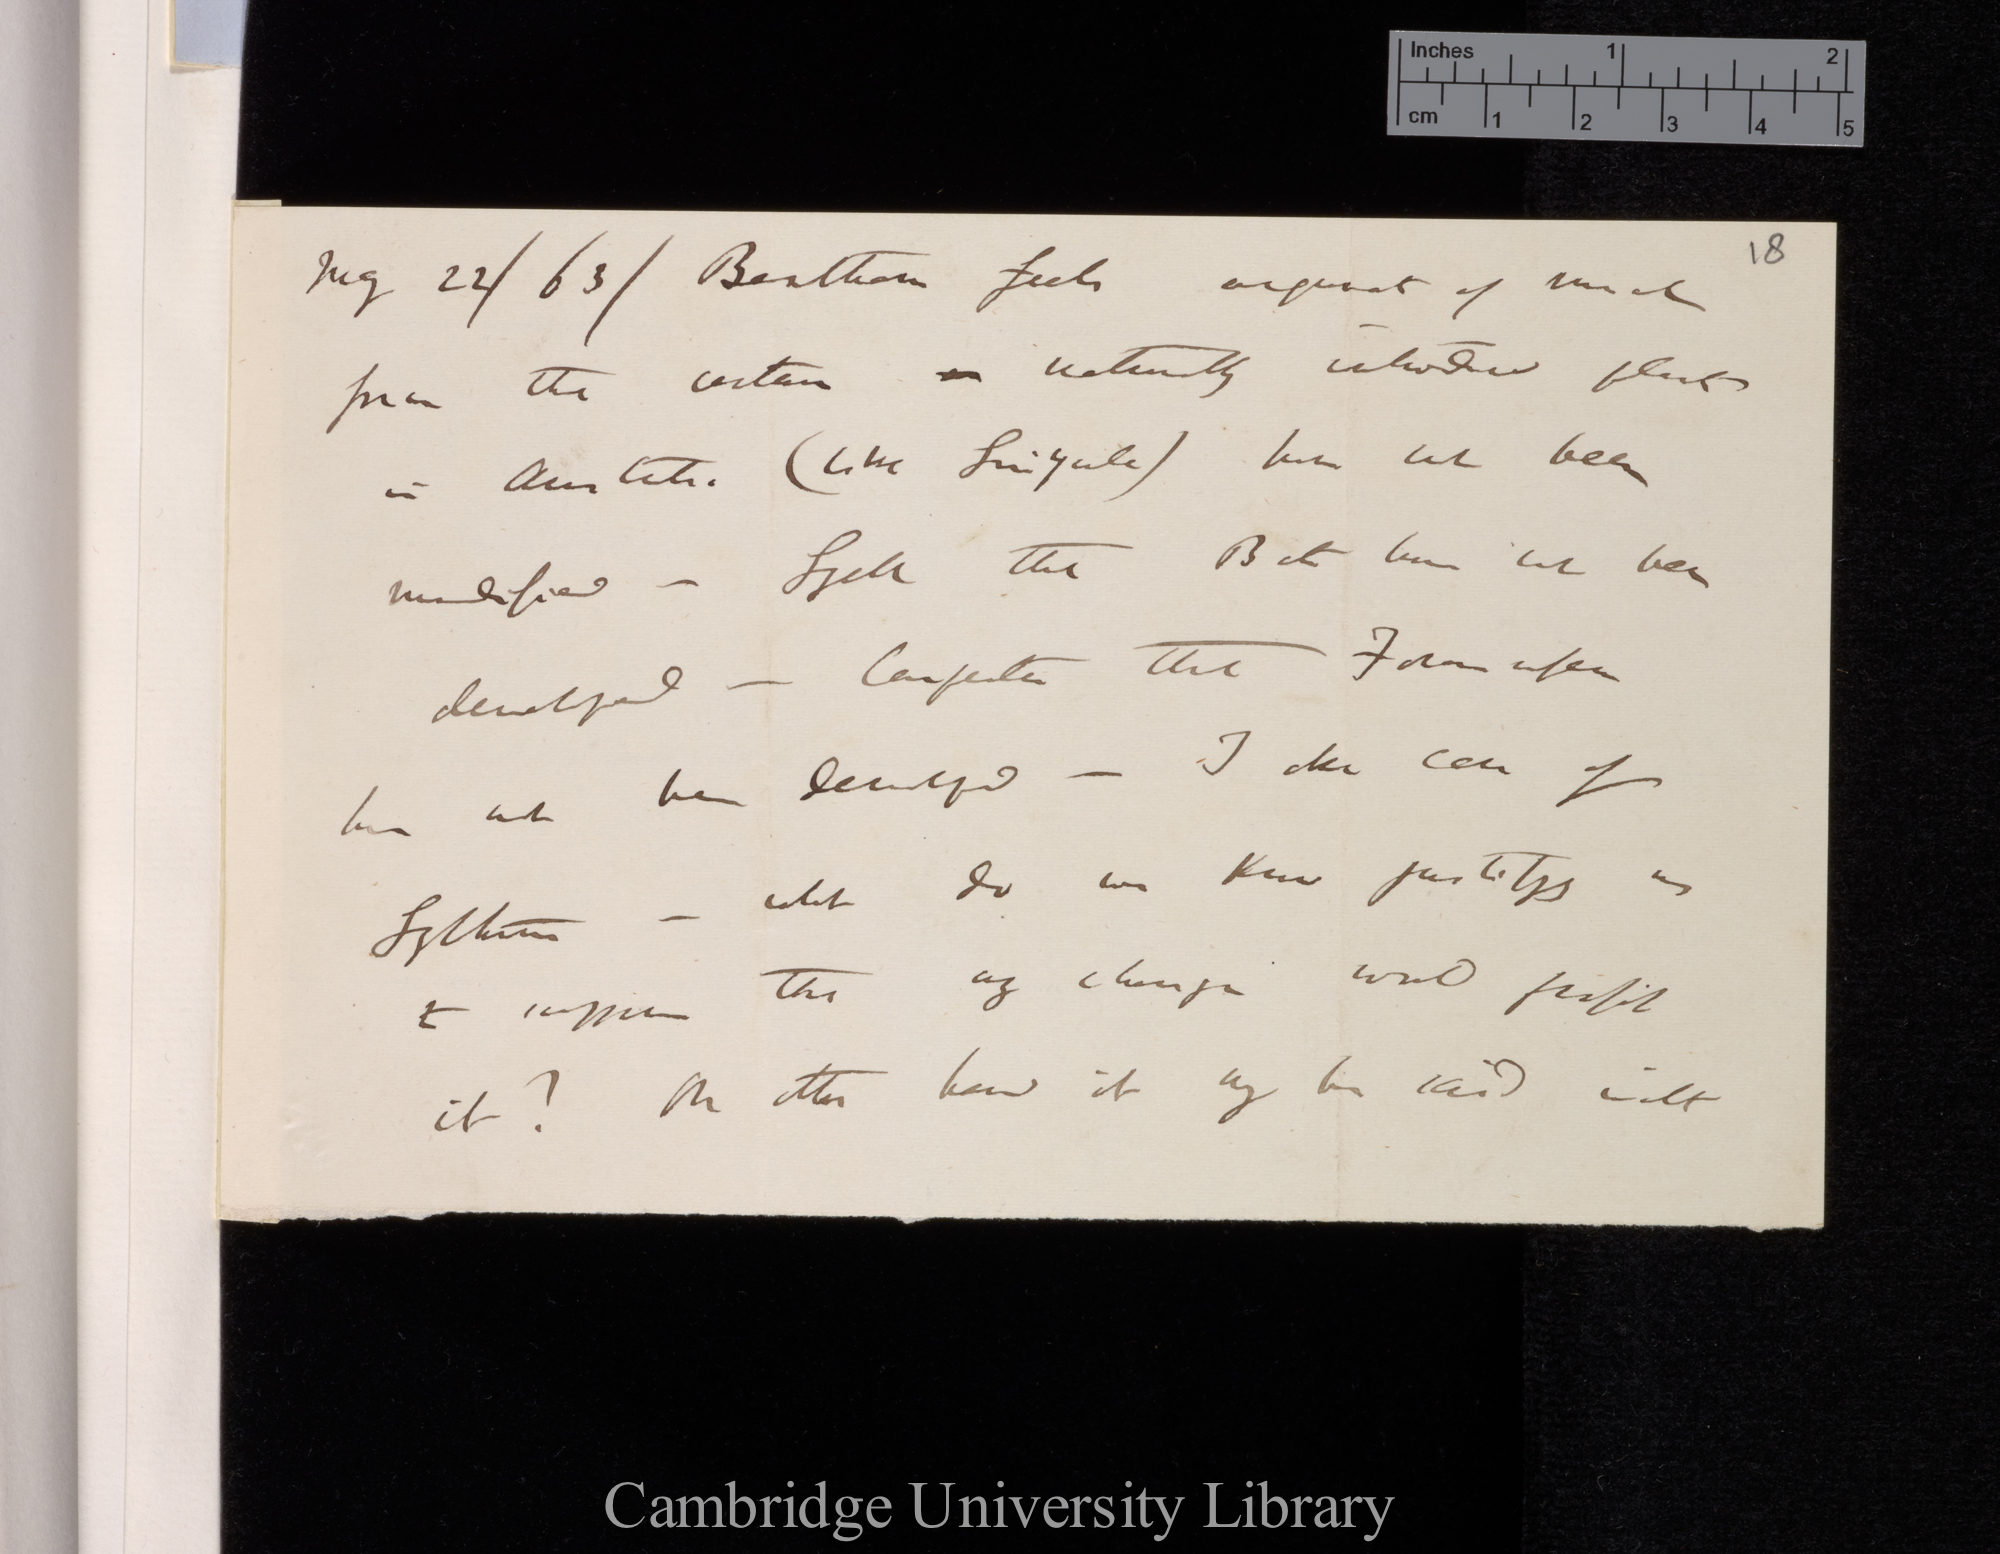 Inches 1 2
cm 1 2 3 4 5
18
May 22/63/ Bentham feels argument of much
from the certain naturally introduced plants
in Australia (like Lingula) have not been
modified — Lyell that Bats have not been
developed — Carpenter that Foraminifera
have not been developed — I also case of
— what do we know justifying us
to suppose that any change would profit
it? On other hand it may be said with
Cambridge University Library